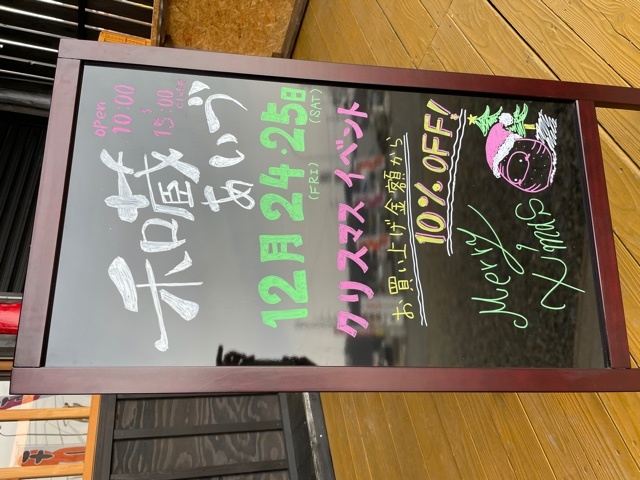 open
10:00
~
15:00
close
和蔵
あいづ
12月24・25日
(FRI) (SAT)
クリスマスイベント
お買い上げ金額から
10%OFF!
Merry
X'mas